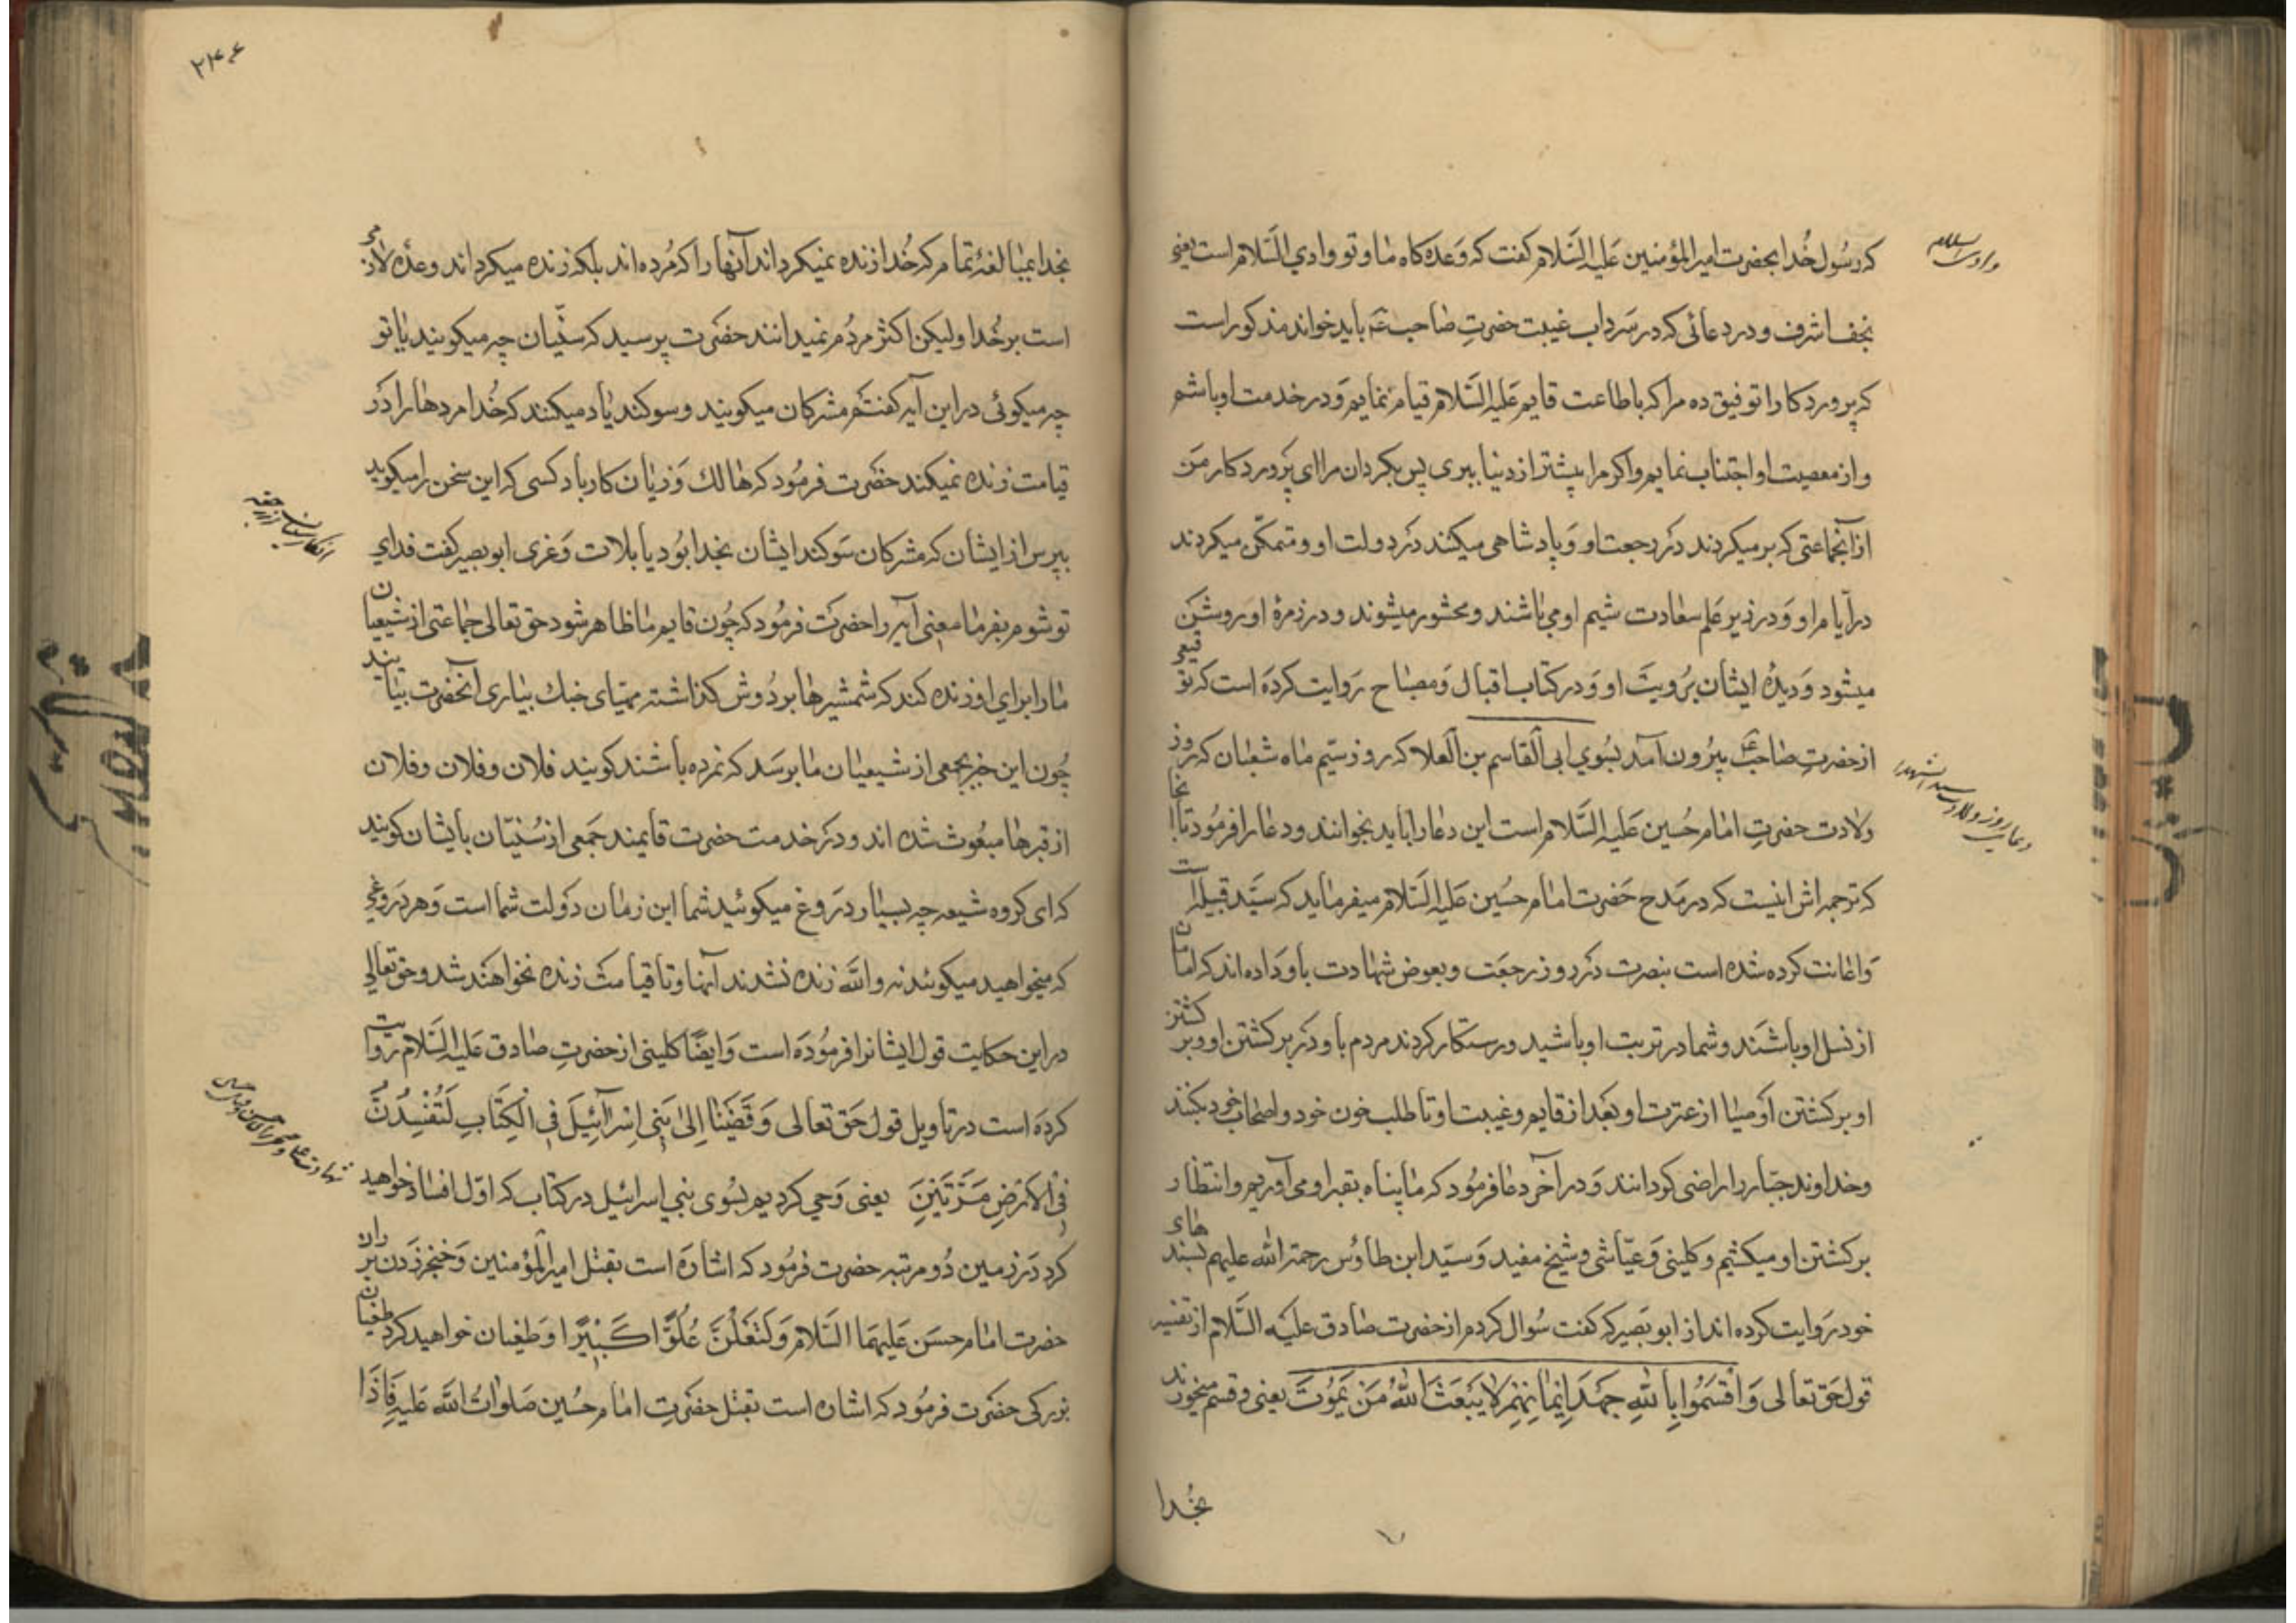 وادی السلام
که رسول خدا بحضرت امیر المؤمنین علیه السلام کفت که وعده کاه ما و تو وادي السلام است یعنی
نجف اشرف و در دعائی که در سرداب غیبت حضرتِ صاحب عم باید خواند مذکور است
که پروردکارا توفیق ده مرا که باطاعت قایم علیه السلام قیام نمایم و در خدمت او باشم
و از معصیت او اجتناب نمایم و اکر مرا پیشتر از دنیا ببری پس بکردان مرا ای پروردکار من
از آنجماعتی که بر میکردند در رجعت او و پادشاهی میکنند در دولت او و متمکّن میکردند
در ایام او و در زیر علم سعادت شیم او می باشند و محشور میشوند و در زمرهٔ او روشن
میشود و دیدهٔ ایشان برویت او و در کتاب اقبال و مصباح روایت کرده است که توقیعی
از حضرتِ صاحب عم بیرون آمد بسوي ابی القاسم بن العلا که روز سیّم ماه شعبان که روز
دعای روز ولادت سید الشهدا
ولادت حضرتِ امام حُسین علیه السلام است این دعا را باید بخوانند و دعا را فرمود تا آنجا
که ترجمه اش اینست که در مدح حضرت امام حُسین علیه السلام میفرماید که سیّد قبیله است
و اعانت کرده شده است بنصرت در روز رجعت و بعوض شهادت باو داده اند که امامان
از نسل او باشند و شما در تربت او باشید و رستکار کردند مردم باو در برکشتن او و برکشتن
او برکشتن اوصیا از عترت او بعد از قایم و غیبت او تا طلب خون خود و اصحاب خود بکنند
و خداوند جبّار را راضی کردانند و در آخر دعا فرمود که ما پناه بقبر او می آوریم و انتظار
برکشتن او میکشیم و کلینی و عیّاشی و شیخ مفید و سیّد ابن طاوُس رحمة الله علیهم بسندهای
خود روایت کرده اند از ابو بصیر که کفت سُوال کردم از حضرت صادق علیه السَّلام از تفسیر
قول حق تعالی وَ اَقْسَمُوا بِاللهِ جَهْدَ اَیْمانِهِمْ لا یَبْعَثُ اللهُ مَنْ یَمُوتُ یعنی و قسم میخورند
بخُدا
۲۳۶
بخدا بمبالغهٔ تمام که خُدا زنده نمیکرداند آنها را که مُرده اند بلکه زنده میکرداند وعدهٔ لازمی
است بر خُدا ولیکن اکثر مردُم نمیدانند حضرت پرسید که سنّیان چه میکویند یا تو
چه میکوئی در این آیه کفتم مشرکان میکویند و سوکند یاد میکنند که خُدا مردها را در
قیامت زنده نمیکند حضرت فرمُود که هالك و زیان کار باد کسی که این سخن را میکوید
انکار سنیان از رجعت
بپرس از ایشان که مشرکان سوکند ایشان بخدا بُود یا بلات و عزی ابو بصیر کفت فدای
تو شوم بفرما معنی آیه را حضرت فرمُود که چُون قایم ما ظاهر شود حق تعالی جماعتی از شیعیان
ما را برای او زنده کند که شمشیرها بر دُوش کذاشته مهیّای جنك بیاری آنحضرت بیایند
چُون این خبر بجمعی از شیعیان ما برسَد که نمرده باشند کویند فلان و فلان و فلان
از قبرها مبعُوث شده اند و در خدمت حضرت قایمند جَمعی از سُنیّان بایشان کویند
که ای کروه شیعه چه بسیار دروغ میکوئید شما این زمان دَولت شما است و هر دروغی
که میخواهید میکوئید نه والله زنده نشدند آنها و تا قیامت زنده نخواهند شد و حق تعالی
در این حکایت قول ایشانرا فرمُوده است و ایضًا کلینی از حضرتِ صادق علیه السلام روایت
کرده است در تاویل قول حَق تعالی وَ قَضَیْنا اِلیٰ بَنی اِسْرآئیلَ فی الْکِتابِ لَتُفْسِدُنَّ
شهادت علی و خنجر زدن امام حسن
فی الاَرْضِ مَرَّتَیْنِ یعنی وحی کردیم بسُوی بنی اسرائیل در کتاب که اوّل افساد خواهید
کرد در زمین دُو مرتبه حضرت فرمُود که اشاره است بقتل امیر المؤمنین و خنجر زدن بر ران
حضرت امام حسَن علیهما السّلام وَ لَتَعْلُنَّ عُلُوًّا کَبیرًا و طغیان خواهید کرد طغیان
بزرکی حضرت فرمُود که اشاره است بقتل حضرتِ امام حُسین صَلوات الله علیه فَاِذا